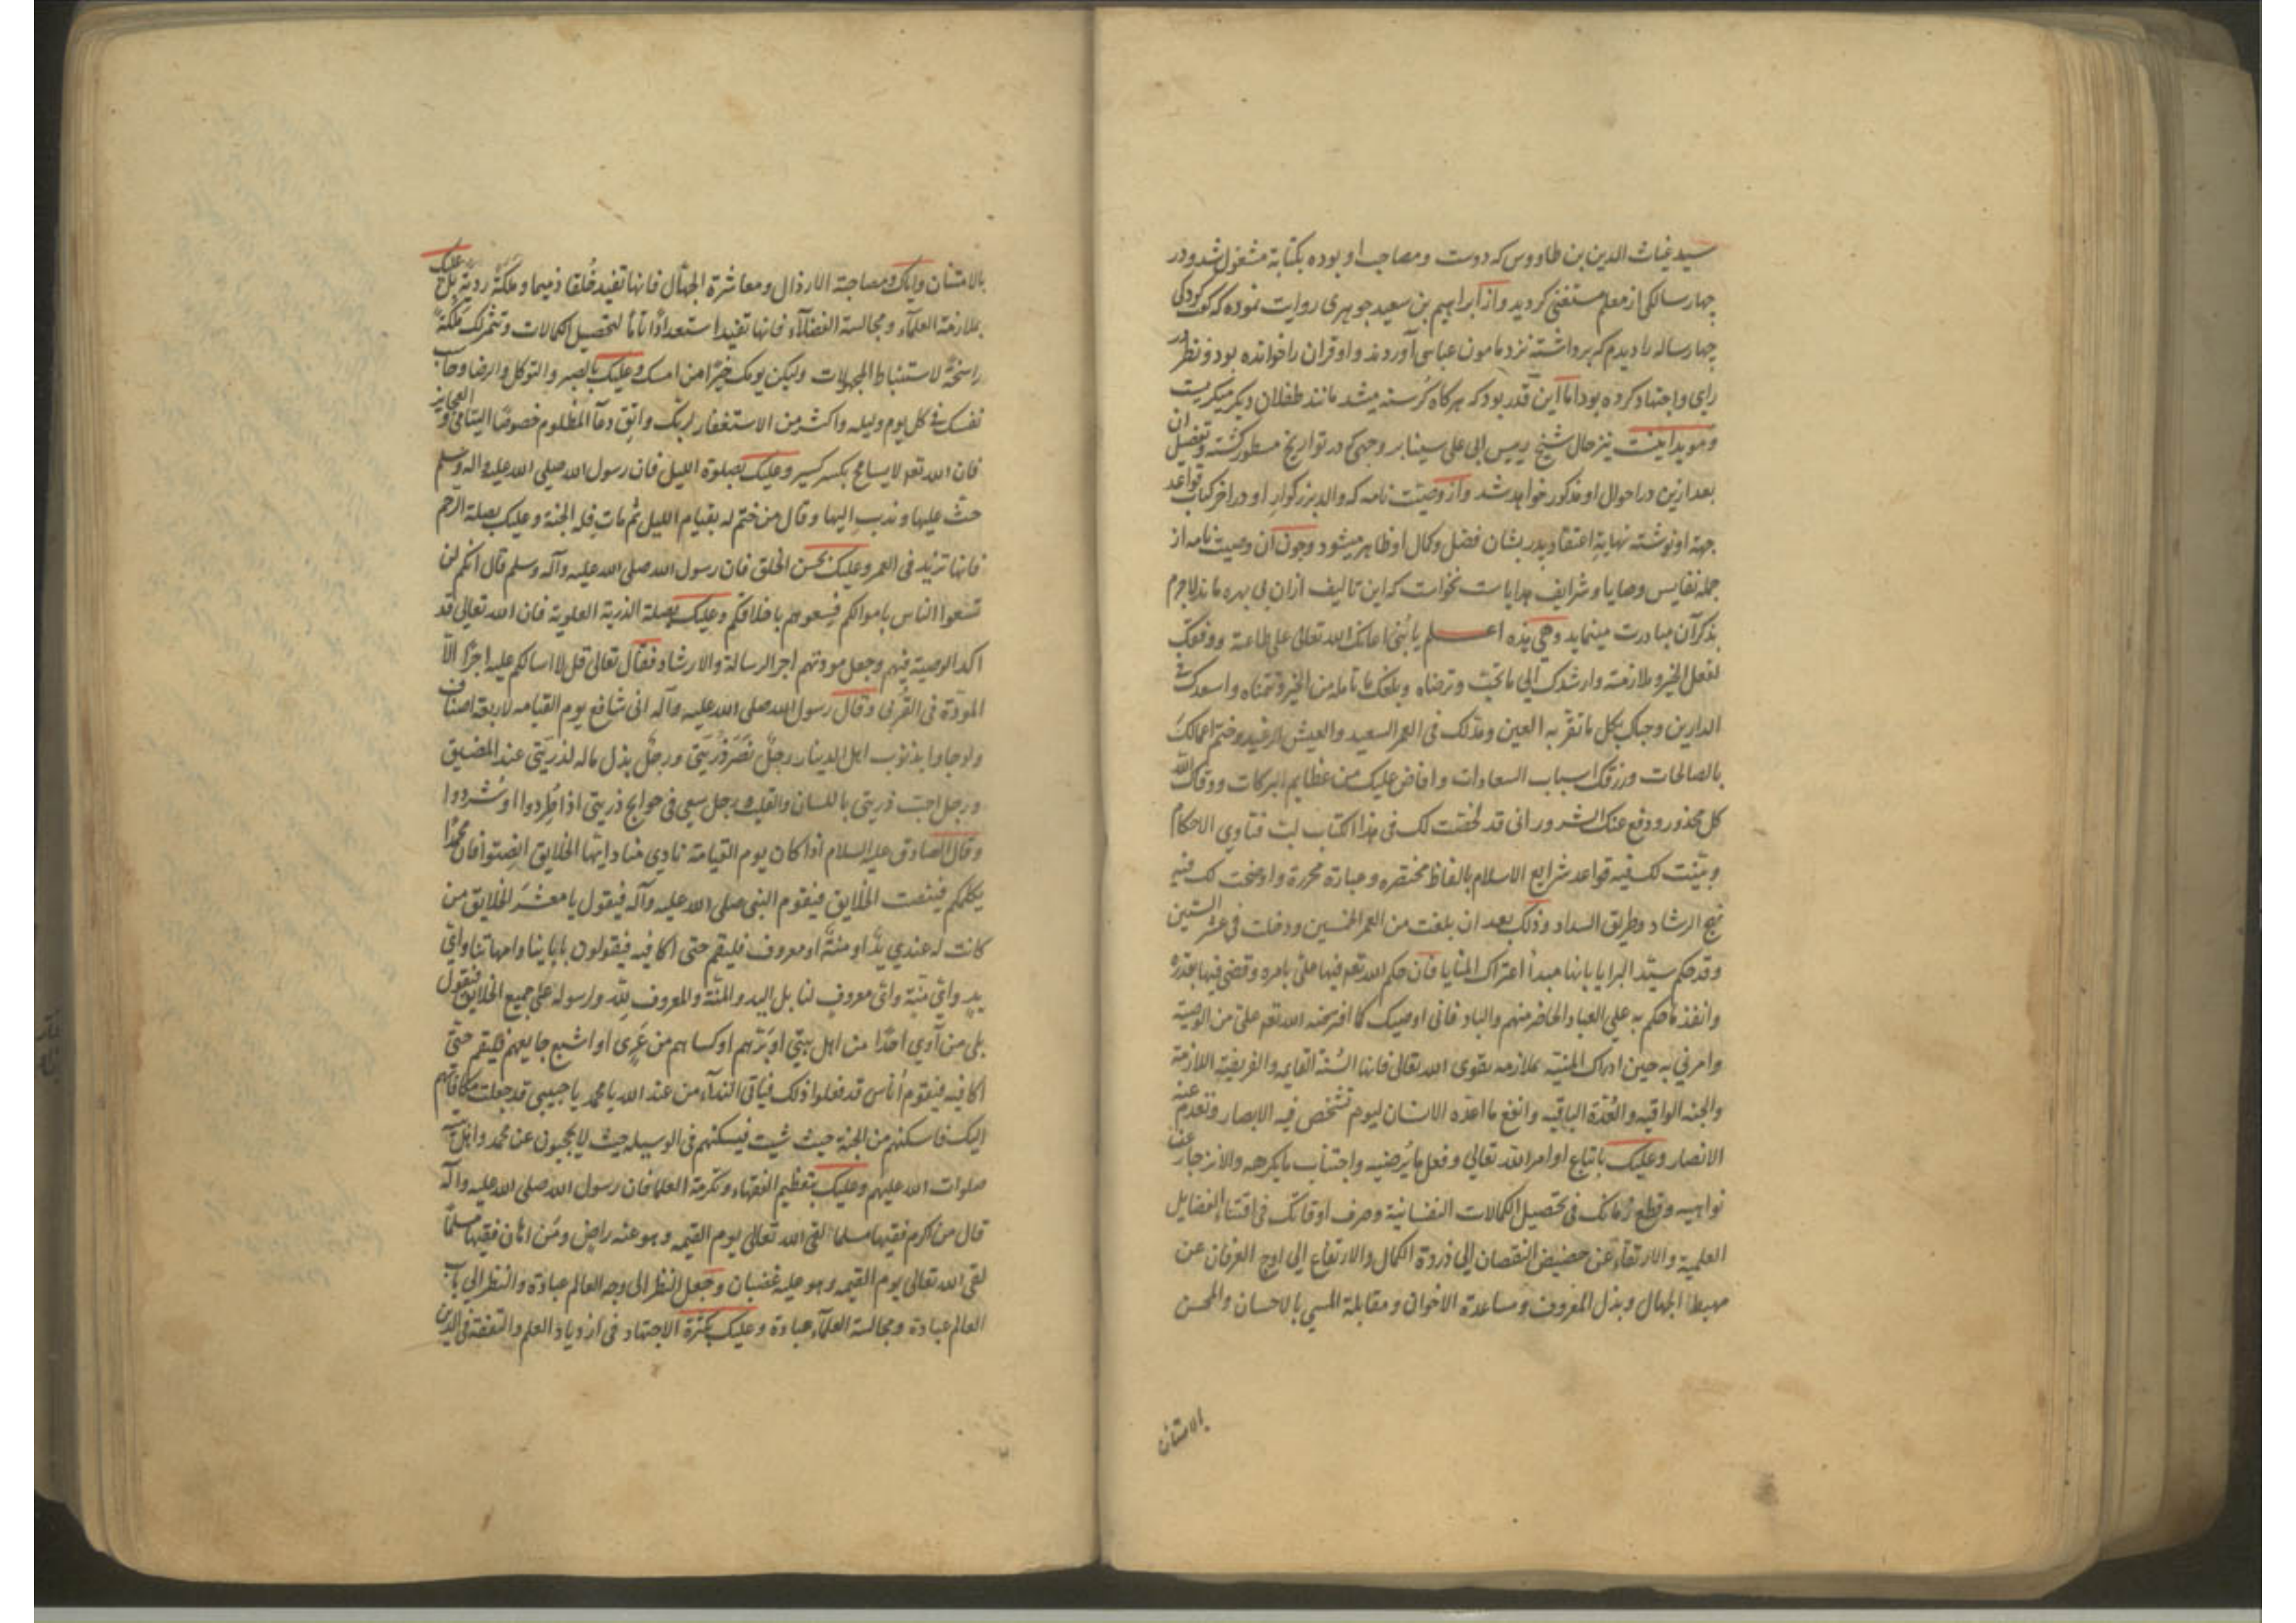 سید غیاث الدین بن طاووس که دوست و مصاحب او بوده بکتابة مشغول شد و در
چهار سالکی از معلم مستغنی کردید و از ابراهیم بن سعید جوهری روایت نموده که کودکی
چهار ساله را دیدم که برداشته نزد مامون عباسی آوردند و او قران را خوانده بود و نظر در
رای و اجتهاد کرده بود اما این قدر بود که هر کاه کرسنه میشد مانند طفلان دیکر میکریست
و موید اینست نیز حال شیخ رییس ابی علی سینا بر وجهی که در تواریخ مسطور کشته و تفصیل ان
بعد ازین در احوال او مذکور خواهد شد و از وصیت نامه که والد بزرکوار او در اخر کتاب قواعد
جهة او نوشته نهایة اعتقاد پدر بشان فضل و کمال او ظاهر میشود و چون آن وصیت نامه از
جمله نفایس وصایا و شرایف هدایا ست نخواست که این تالیف ازان بی بهره ماند لاجرم
بذکر آن مبادرت مینماید وهی هذه اعلم یا بنی اعانک الله تعالی علی طاعته ووفقک
لفعل الخیر وملازمته وارشدک الی ما یحبه ویرضاه وبلغک ما تامله من الخیر وتتمناه واسعدک فی
الدارین وحباک بکل ما تقر به العین ومد لک فی العمر السعید والعیش الرغید وختم اعمالک
بالصالحات ورزقک اسباب السعادات وافاض علیک من عظایم البرکات ووقاک الله
کل محذور ودفع عنک الشرور انی قد لخصت لک فی هذا الکتاب لب فتاوی الاحکام
وبینت لک فیه قواعد شرایع الاسلام بالفاظ مختصره وعبارة محررة واوضحت لک فیه
نهج الرشاد وطریق السداد وذلک بعد ان بلغت من العمر الخمسین ودخلت فی عشر الستین
وقد حکم سید البرایا بانها مبدأ اعتراک المنایا فان حکم الله تعه فیها علی بامره وقضی فیها بقدره
وانفذ ما حکم به علی العباد الحاضر منهم والباد فانی اوصیک کما افترضه الله تعه علی من الوصیة
وامرنی به حین ادراک المنیة بملازمه تقوی الله تعالی فانها السنة القایمه والفریضة اللازمة
والجنه الواقیه والعدة الباقیه وانفع ما اعده الانسان لیوم تشخص فیه الابصار وتعدم عنه
الانصار وعلیک باتباع اوامر الله تعالی وفعل ما یرضیه واجتناب ما یکرهه والانزجار عن
نواهیه وقطع زمانک فی تحصیل الکمالات النفسانیة وصرف اوقاتک فی اقتناء الفضایل
العلمیة والارتقاء عن حضیض النقصان الی ذروة الکمال والارتفاع الی اوج العرفان عن
مهبط الجهال وبذل المعروف ومساعدة الاخوان ومقابلة المسی بالاحسان والمحسن
بالامتنان
بالامتنان وایاک ومصاحبة الارذال ومعاشرة الجهال فانها تفید خلقا ذمیما وملکة ردیة بل علیک
بملازمة العلماء ومجالسة الفضلآء فانها تفید استعدادًا تامًا لتحصیل الکمالات وتثمر لک ملکة
راسخة لاستنباط المجهولات ولیکن یومک خیرًا من امسک وعلیک بالصبر والتوکل والرضا وحاسب
نفسک فی کل یوم ولیله واکثر من الاستغفار لربک واتق دعآ المظلوم خصوصًا الیتامی و العجایز
فان الله تعه لا یسامح بکسر کسیر وعلیک بصلوة اللیل فان رسول الله صلی الله علیه واله وسلم
حث علیها وندب الیها وقال من ختم له بقیام اللیل ثم مات فله الجنة وعلیک بصلة الرحم
فانها تزید فی العمر وعلیک بحسن الخلق فان رسول الله صلی الله علیه وآله وسلم قال انکم لن
تسعوا الناس باموالکم فسعوهم باخلاقکم وعلیک بصلة الذریة العلویة فان الله تعالی قد
اکد الوصیة فیهم وجعل مودتهم اجر الرسالة والارشاد فقال تعالی قل لا اسالکم علیه اجرًا الا
المودة فی القربی وقال رسول الله صلی الله علیه وآله انی شافع یوم القیامه لاربعة اصناف
ولو جاوا بذنوب اهل الدینا رجل نصر ذریتی ورجل بذل ماله لذریتی عند المضیق
ورجل احب ذریتی باللسان والقلب ورجل سعی فی حوایج ذریتی اذا طردوا او شردوا
وقال الصادق علیه السلام اذا کان یوم القیامة نادی مناد ایها الخلایق انصتوا فان محمدًا
یکلمکم فینصت الخلایق فیقوم النبی صلی الله علیه وآله فیقول یا معشر الخلایق من
کانت له عندی ید او منة او معروف فلیقم حتی اکافیه فیقولون بابآینا وامهاتنا وای
ید وای منة وای معروف لنا بل الید والمنة والمعروف لله ورسوله علی جمیع الخلایق فیقول
بلی من آوی احدًا من اهل بیتی او برهم او کساهم من عری او اشبع جایعهم فلیقم حتی
اکافیه فیقوم أناس قد فعلوا ذلک فیاتی الندآء من عند الله یا محمد یا حبیبی قد جعلت مکافاتهم
الیک فاسکنهم من الجنة حیث شیت فیسکنهم فی الوسیله حیث لا یحجبون عن محمد واهل بیته
صلوات الله علیهم وعلیک بتعظیم الفقهاء وتکرمة العلما فان رسول الله صلی الله علیه وآله
قال من اکرم فقیها مسلما لقی الله تعالی یوم القیمه وهو عنه راض ومن اهان فقیها مسلمًا
لقی الله تعالی یوم القیمه وهو علیه غضبان وجعل النظر الی وجه العالم عبادة والنظر الی باب
العالم عبادة ومجالسة العلمآء عبادة وعلیک بکثرة الاجتهاد فی ازدیاد العلم والتفقه فی الدین